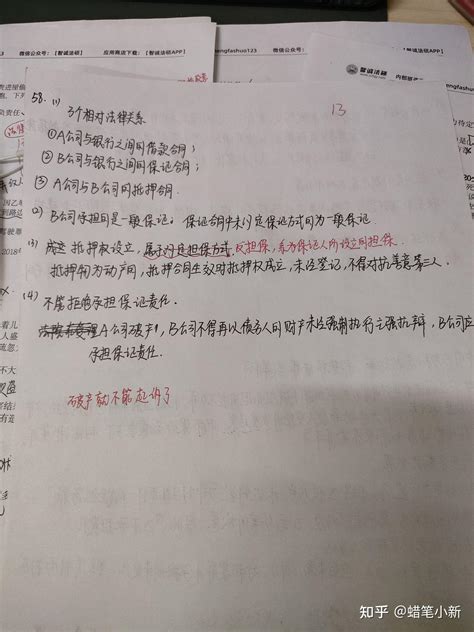 微信公众号:【智诚法硕】 应用商店下载:【智诚法硕APP】
hengfashuo123
微信公众号:【智诚法硕】 应用商店下载:【智诚法硕APP】
智诚法硕
内部
58. (1)
13
3个相对法律关系
① A公司与银行之间间借款合同;
② B公司与银行之间间保证合同;
③ A公司与B公司间抵押合同.
(2) B公司承担间是一般保证。保证合同中未约定保证方式间为一般保证
(3) 成立 抵押权设立, 属于约定担保方式, 反担保, 系为保证人所设立间担保.
抵押物为动产间, 抵押合同生效时抵押权成立, 未经登记, 不得对抗善意第三人.
(4) 不能拒绝承担保证责任.
A公司破产, B公司不得再以债务人间财产未经强制执行之强抗辩, B公司应
承担保证责任.
破产就不能起诉了
知乎 @蜡笔小新